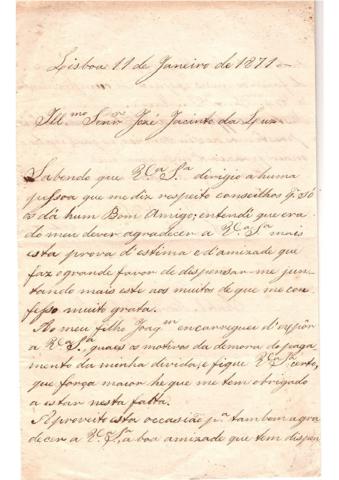 Lisboa 11 de Janeiro de 1871 =
Ill.mo Senr José Jacinto da Luz
Sabendo que V.ca S.a dirigio a huma
pessoa que me diz respeito conselhos q. só
os dá hum Bom Amigo; entendi que era
do meu dever agradecer a V.ca S.a mais
esta prova d'estima e d'amizade que
faz o grande favor de dispensar-me jun-
tando mais este aos muitos de que me con
fesso muito grata.
Ao meu filho Joaq.m encarreguei d'expôr
a V.ca S.a quaes os motivos da demora do paga
mento da minha divida, e fique V.ca S.a certo,
que força maior he que me tem obrigado
a estar nesta falta.
Aproveito esta occasião p.a tambem agra
decer a V.ca S.a a boa amizade que tem dispen